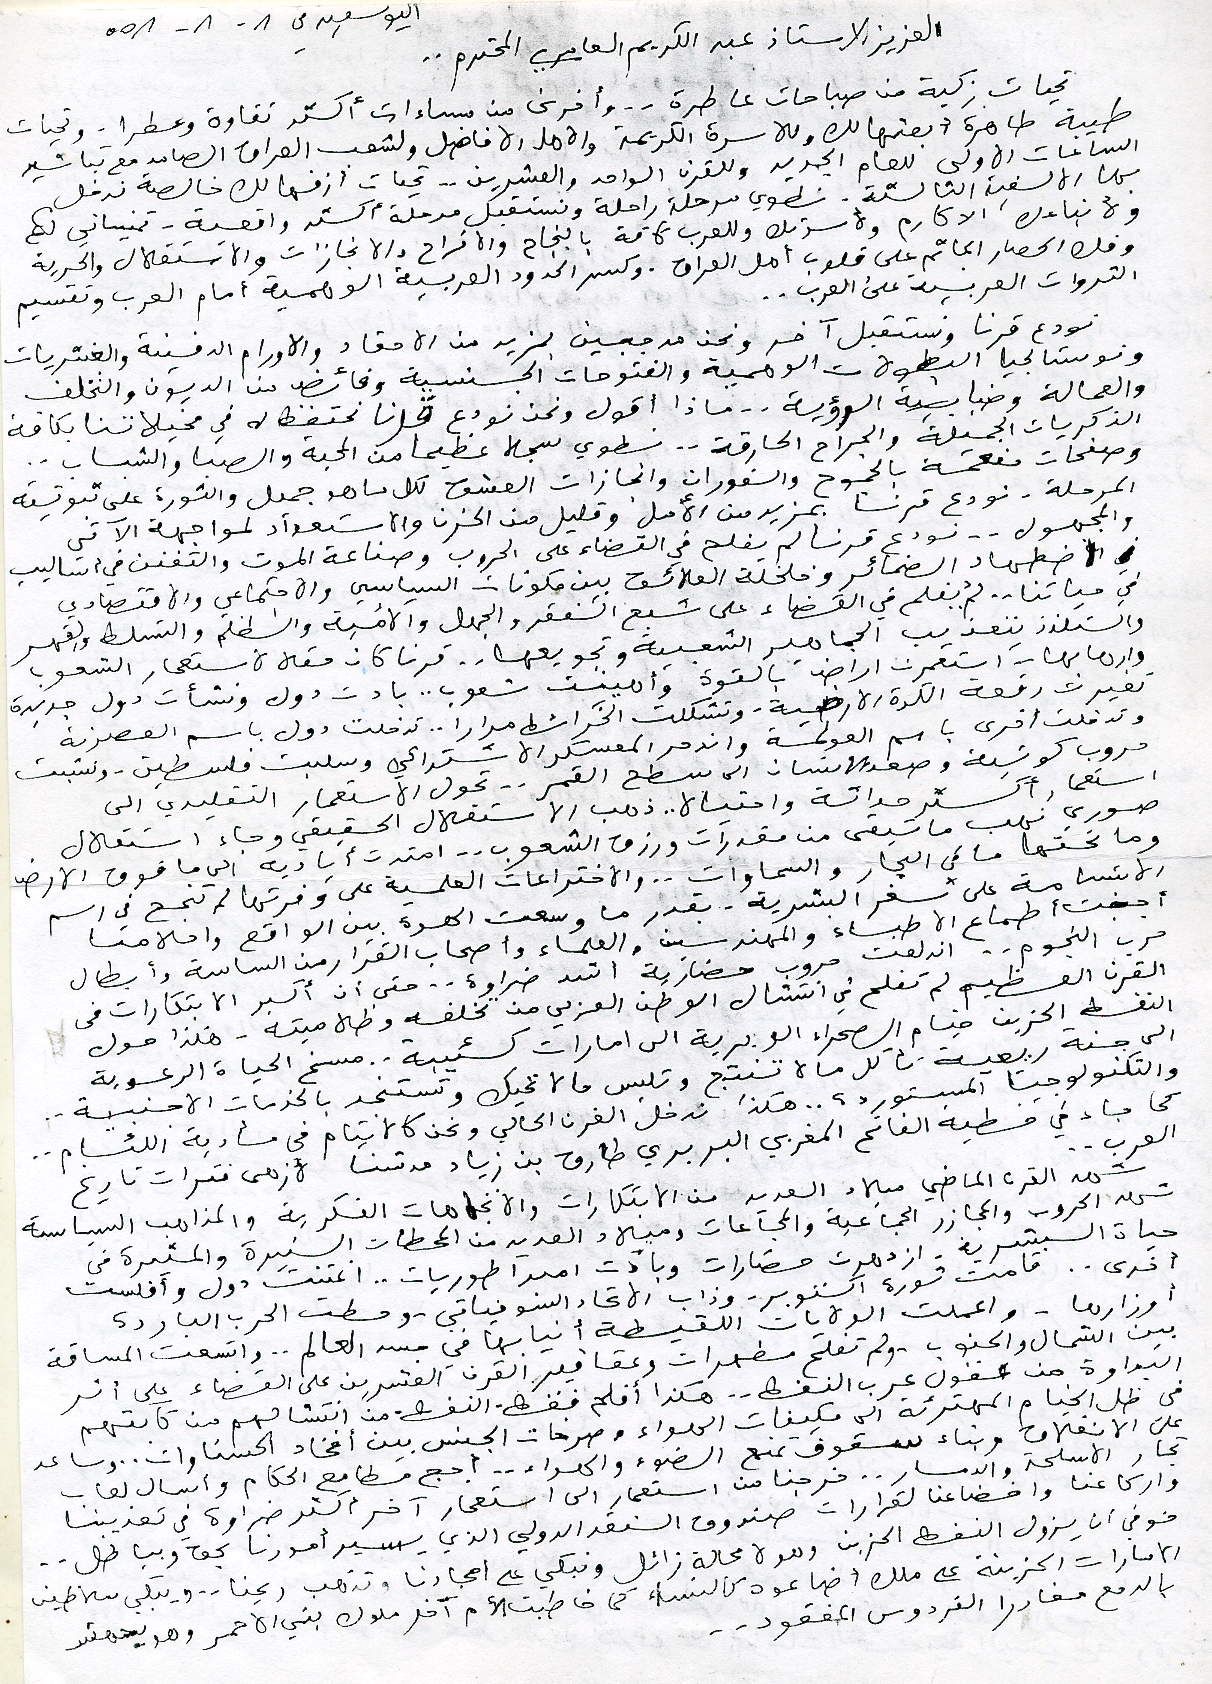 اليوسفية في ١ - ١ -
العزيز الاستاذ عبد الكريم العامري المحترم ..
تحيات زكية من صباحات عاطرة .. وأخرى من مساءات أكثر نقاوة وعطرا - وتحيات
طيبة طاهرة أبعثها لك وللاسرة الكريمة والاهل الافاضل ولشعب العراق الصامد مع تباشير
الساعات الاولى للعام الجديد وللقرن الواحد والعشرين .. تحيات أزفها لك خالصة ندخل
بها الالفية الثالثة - نطوي مرحلة راحلة ونستقبل مرحلة أكثر واقعية - تمنياتي لكم
ولأنبائك الاكارم ولأسرتك وللعرب كافة بالنجاح والافراح والانجازات والاستقلال والحرية
وفك الحصار الجاثم على قلوب أهل العراق . وكسر الحدود العربية الوهمية أمام العرب وتقسيم
الثروات العربية على العرب ..
نودع قرنا ونستقبل آخر ونحن مدججين بمزيد من الاحقاد والاورام الدفينة والعنتريات
ونوستالجيا البطولات الوهمية والفتوحات الجنسية وفائض من الديون والتخلف
والعمالة وضبابية الرؤية .. ماذا أقول ونحن نودع قرنا نحتفظ له في مخيلاتنا بكافة
الذكريات الجميلة والجراح الحارقة .. نطوي سجلا عظيما من المحبة والصبا والشباب ..
وصفحات مفعمة بالجموح والفوران وانجازات العشق لكل ما هو جميل والثورة على شوفينية
المرحلة - نودع قرنا بمزيد من الأمل وقليل من الحزن والاستعداد لمواجهة الآتي
والمجهول .. نودع قرنا لم يفلح في القضاء على الحروب وصناعة الموت والتفنن في اساليب
الاضطهاد الضمائر وخلخلة العلائق بين مكونات السياسي والاجتماعي والاقتصادي
في حياتنا .. لم يفلح في القضاء على شبح الفقر والجهل والأمية والظلم والتسلط والقهر
والتلذذ بتعذيب الجماهير الشعبية وتجويعها .. قرنا كان حقلا لاستعمار الشعوب
وارهابها - استعمرت اراض بالقوة وأهينت شعوب .. بادت دول ونشأت دول جديدة
تغيرت رقعة الكرة الارضية - وتشكلت الخرائط مرارا .. تدخلت دول باسم العصرنة
وتدخلت أخرى باسم العولمة واندحر المعسكر الاشتراكي وسلبت فلسطين - ونشبت
حروب كونية وصعد الانسان الى سطح القمر .. تحول الاستعمار التقليدي الى
استعمار أكثر حداثة واحتيالا .. ذهب الاستقلال الحقيقي وجاء استقلال
صوري نهب ما تبقى من مقدرات ورزق الشعوب .. امتدت أياديه الى ما فوق الارض
وما تحتها ما في البحار والسماوات .. والاختراعات العلمية على وفرتها لم تنجح في رسم
الابتسامة على ثغر البشرية - بقدر ما وسعت الهوة بين الواقع واحلامنا
أججت أطماع الاطباء والمهندسين والعلماء وأصحاب القرار من الساسة وأبطال
حرب النجوم .. اندلعت حروب حضارية اشد ضراوة .. حتى أن أكبر الابتكارات في
القرن العظيم لم تفلح في انتشال الوطن العربي من تخلفه وظلاميته - هكذا حول
النفط الحزين خيام الصحراء العربية الى امارات كئيبة .. مسخ الحياة الرعوية
الى جنة ريعية تأكل ما لا تنتج وتلبس ما لا تحيك وتستنجد بالخدمات الاجنبية ..
والتكنولوجيا المستوردة .. هكذا ندخل القرن الحالي ونحن كالايتام في مأدبة اللئام ..
كما جاء في خطبة الفاتح المغربي البربري طارق بن زياد مدشنا لأزهى فترات تاريخ
العرب ..
شهد القرن الماضي ميلاد العديد من الابتكارات والاتجاهات الفكرية والمذاهب السياسية
شهد الحروب والمجازر الجماعية والمجاعات وميلاد العديد من المحطات النيرة والمثمرة في
حياة البشرية - ازدهرت حضارات وبادت امبراطوريات .. اغتنت دول وأفلست
أخرى .. قامت ثورة أكتوبر - وذاب الاتحاد السوفياتي - وحطت الحرب الباردة
أوزارها - واعملت الولايات اللقيطة أنيابها في جسد العالم .. واتسعت المسافة
بين الشمال والجنوب - ولم تفلح مطهرات وعقاقير القرن العشرين على القضاء على أثر
البداوة من عقول عرب النفط .. هكذا أفلح فقط - النفط - من انتشالهم من كآبتهم
في ظل الخيام المهترئة الى مكيفات الهواء وصرخات الجنس بين أفخاذ الحسناوات .. وساعد
على الانغلاق وبناء سقوف تمنع الضوء والهواء .. أجج مطامح الحكام وأسال لعاب
تجار الاسلحة والدمار .. خرجنا من استعمار الى استعمار آخر أكثر ضراوة في تعذيبنا
واركاعنا واخضاعنا لقرارات صندوق النقد الدولي الذي يسير أمورنا بحق وبباطل ..
خوفي أن يزول النفط الحزين وهو لا محالة زائل ونبكي على أمجادنا وتذهب ريحنا .. ويبكي سلاطين
الامارات الحزينة على ملك أضاعوه كالنساء كما خاطبت الأم آخر ملوك بني الاحمر وهو يجهش
بالدمع مغادرا الفردوس المفقود ..